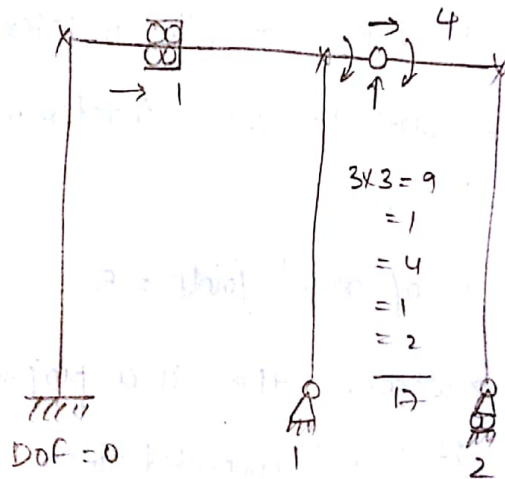 4
1
3×3 = 9
= 1
= 4
= 1
= 2
17
DOF = 0
1
2